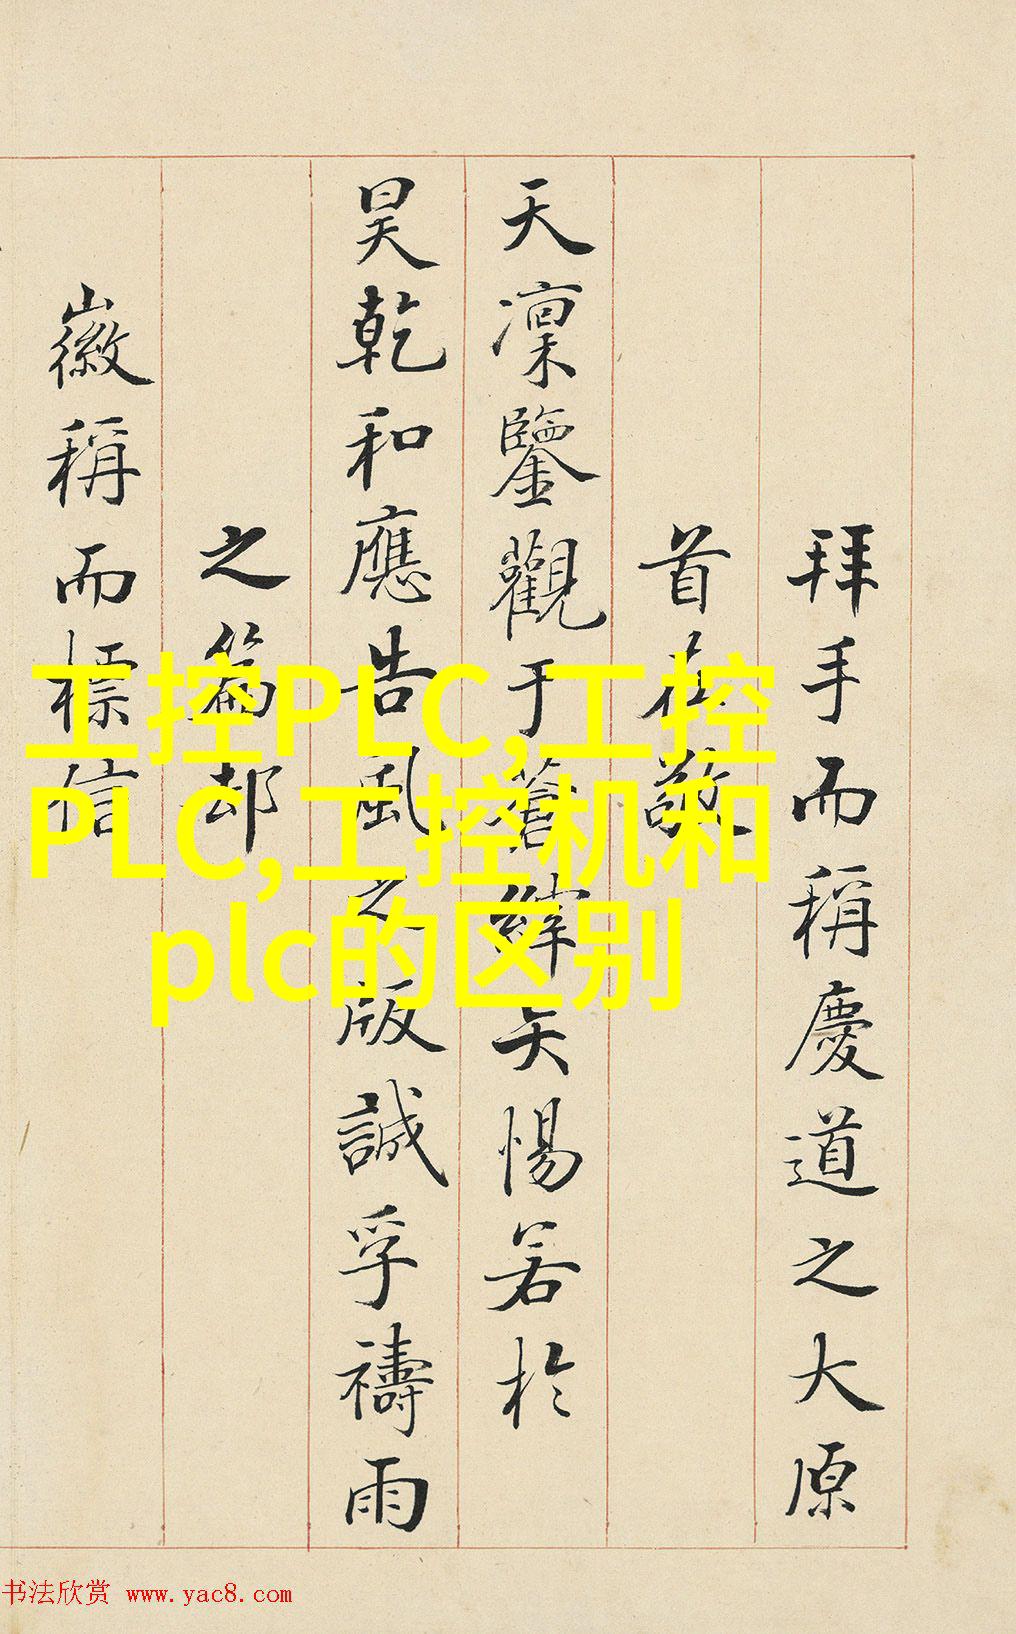 拜手而稱慶道之大原
首在敬
天凜鑒觀于蒼緯矢惕若於
昊乾和應告風之版誠孚禱雨
之篇却
徽稱而標信
工控PLC,工控
PLC,工控机和
plc的区别
书法欣赏 www.yac8.com